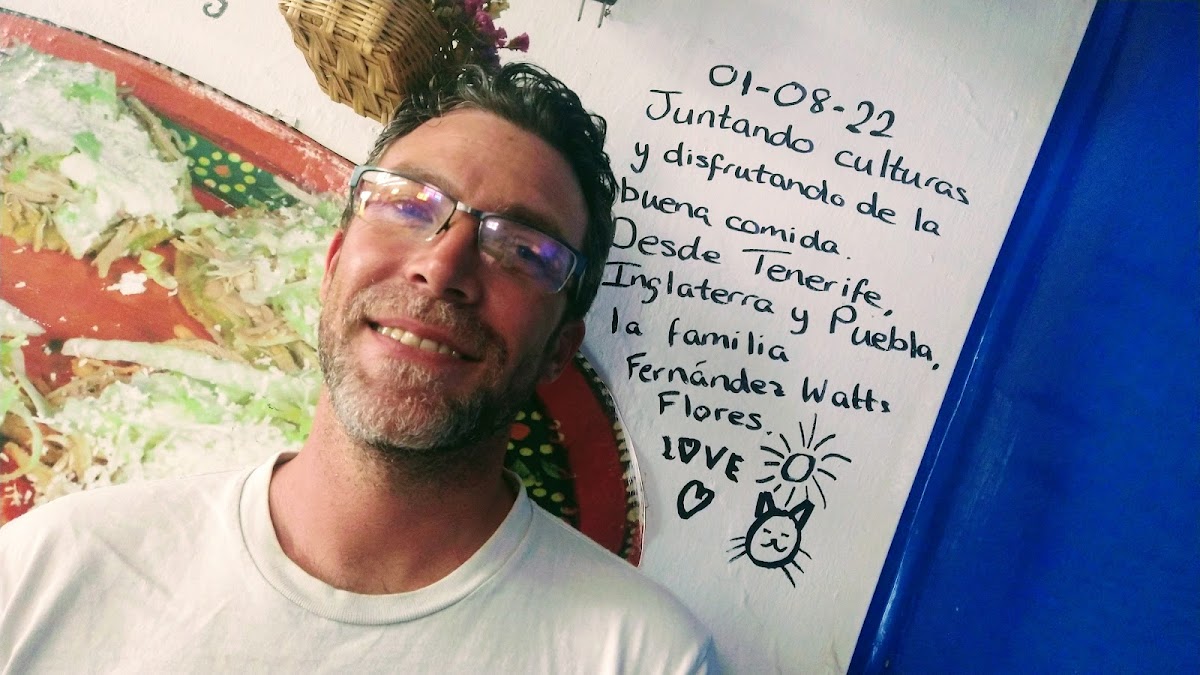 01-08-22
Juntando culturas
y disfrutando de la
buena comida.
Desde Tenerife,
Inglaterra y Puebla,
la familia
Fernández Watts
Flores.
LOVE